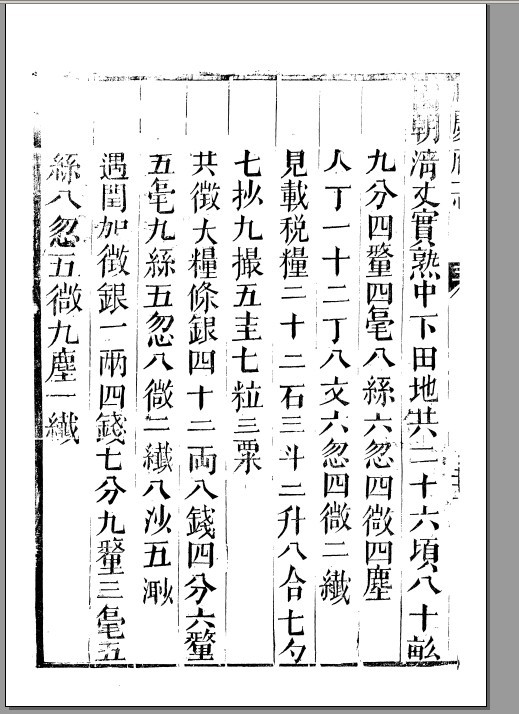 朝清丈實熟中下田地共二十六頃八十畝
九分四釐四毫八絲六忽四微四塵
人丁一十二丁八文六忽四微二纖
見載税糧二十二石三斗二升八合七勺
七抄九撮五圭七粒三粟
共徵大糧條銀四十二兩八錢四分六釐
五毫九絲五忽八微二纖八沙五渺
遇閏加徵銀一兩四錢七分九釐三毫五
絲八忽五微九塵一纖